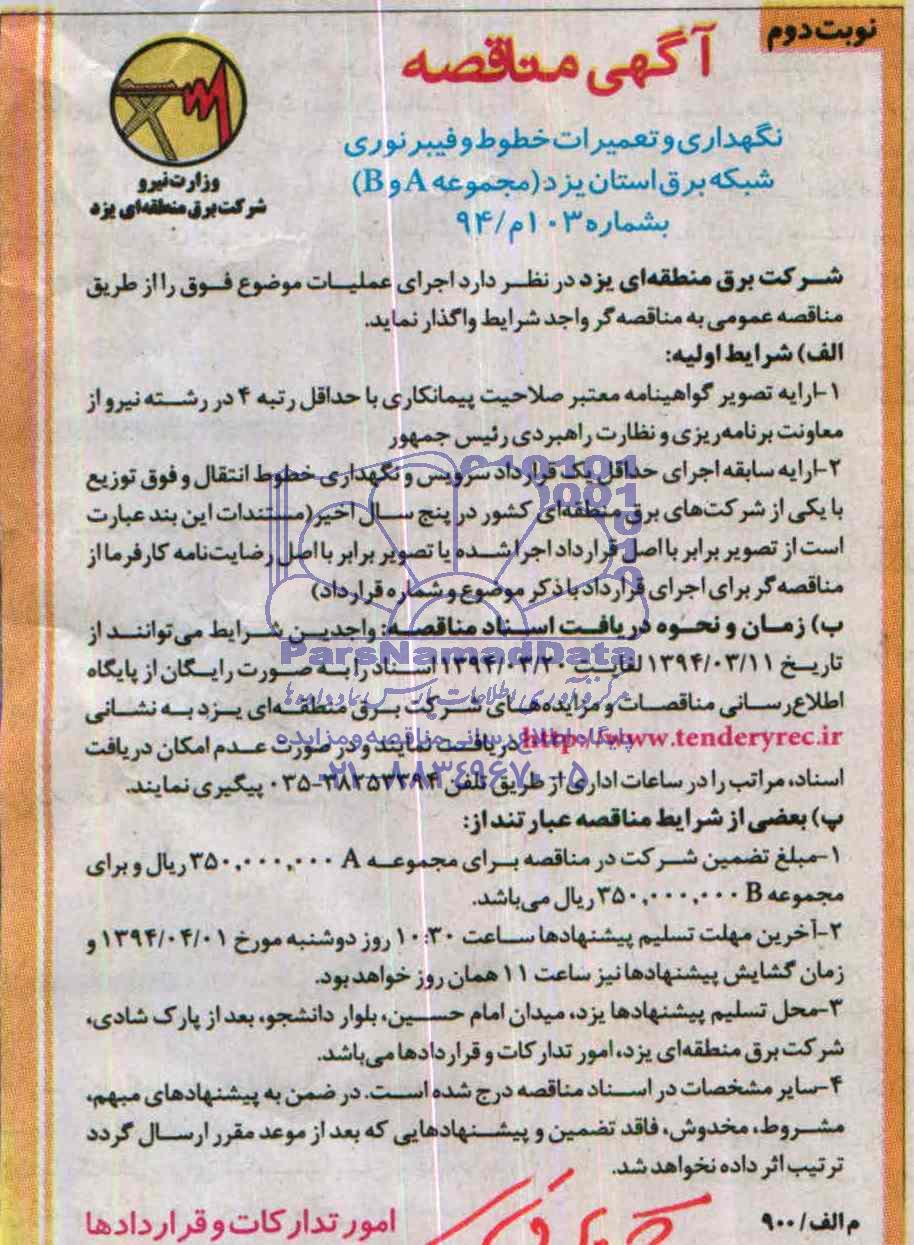 نوبت دوم
آگهی مناقصه
نگهداری و تعمیرات خطوط و فیبر نوری
شبکه برق استان یزد (مجموعه A و B)
بشماره ۱۰۳م/۹۴
وزارت نیرو
شرکت برق منطقه‌ای یزد
شرکت برق منطقه‌ای یزد در نظر دارد اجرای عملیات موضوع فوق را از طریق
مناقصه عمومی به مناقصه‌گر واجد شرایط واگذار نماید.
الف) شرایط اولیه:
۱-ارایه تصویر گواهینامه معتبر صلاحیت پیمانکاری با حداقل رتبه ۴ در رشته نیرو از
معاونت برنامه‌ریزی و نظارت راهبردی رئیس جمهور
۲-ارایه سابقه اجرای حداقل یک قرارداد سرویس و نگهداری خطوط انتقال و فوق توزیع
با یکی از شرکت‌های برق منطقه‌ای کشور در پنج سال اخیر (مستندات این بند عبارت
است از تصویر برابر با اصل قرارداد اجرا شده یا تصویر برابر با اصل رضایت‌نامه کارفرما از
مناقصه‌گر برای اجرای قرارداد با ذکر موضوع و شماره قرارداد)
ب) زمان و نحوه دریافت اسناد مناقصه: واجدین شرایط می‌توانند از
ParsNamadData
تاریخ ۱۳۹۴/۰۳/۱۱ لغایت ۱۳۹۴/۰۳/۲۰ اسناد را به صورت رایگان از پایگاه
مرکز فرآوری اطلاعات پارس نماد داده‌ها
اطلاع‌رسانی مناقصات و مزایده‌های شرکت برق منطقه‌ای یزد به نشانی
پایگاه اطلاع رسانی مناقصه و مزایده
http://www.tenderyrec.ir دریافت نمایند و در صورت عدم امکان دریافت
۰۲۱-۸۸۳۴۹۶۷۰-۵
اسناد، مراتب را در ساعات اداری از طریق تلفن ۳۸۲۵۳۳۹۴-۰۳۵ پیگیری نمایند.
پ) بعضی از شرایط مناقصه عبارتند از:
۱-مبلغ تضمین شرکت در مناقصه برای مجموعه A ۳۵۰,۰۰۰,۰۰۰ ریال و برای
مجموعه B ۳۵۰,۰۰۰,۰۰۰ ریال می‌باشد.
۲-آخرین مهلت تسلیم پیشنهادها ساعت ۱۰:۳۰ روز دوشنبه مورخ ۱۳۹۴/۰۴/۰۱ و
زمان گشایش پیشنهادها نیز ساعت ۱۱ همان روز خواهد بود.
۳-محل تسلیم پیشنهادها یزد، میدان امام حسین، بلوار دانشجو، بعد از پارک شادی،
شرکت برق منطقه‌ای یزد، امور تدارکات و قراردادها می‌باشد.
۴-سایر مشخصات در اسناد مناقصه درج شده است. در ضمن به پیشنهادهای مبهم،
مشروط، مخدوش، فاقد تضمین و پیشنهادهایی که بعد از موعد مقرر ارسال گردد
ترتیب اثر داده نخواهد شد.
م الف/۹۰۰
امور تدارکات و قراردادها